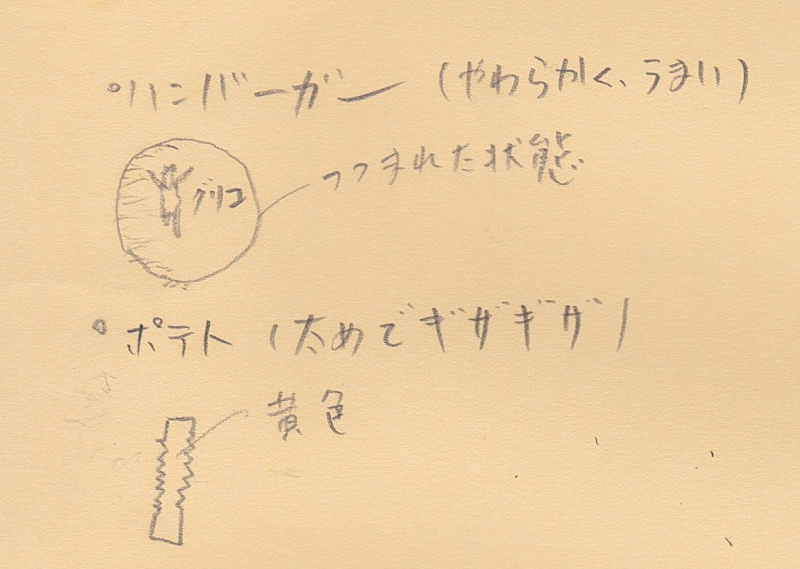 °ハンバーガー (やわらかく、うまい)
グリコ
つつまれた状態
°ポテト (太めでギザギザ)
黄色